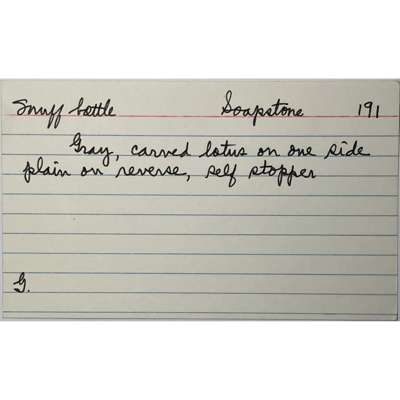 Snuff bottle Soapstone 191
Gray, carved lotus on one side
plain on reverse, self stopper
G.